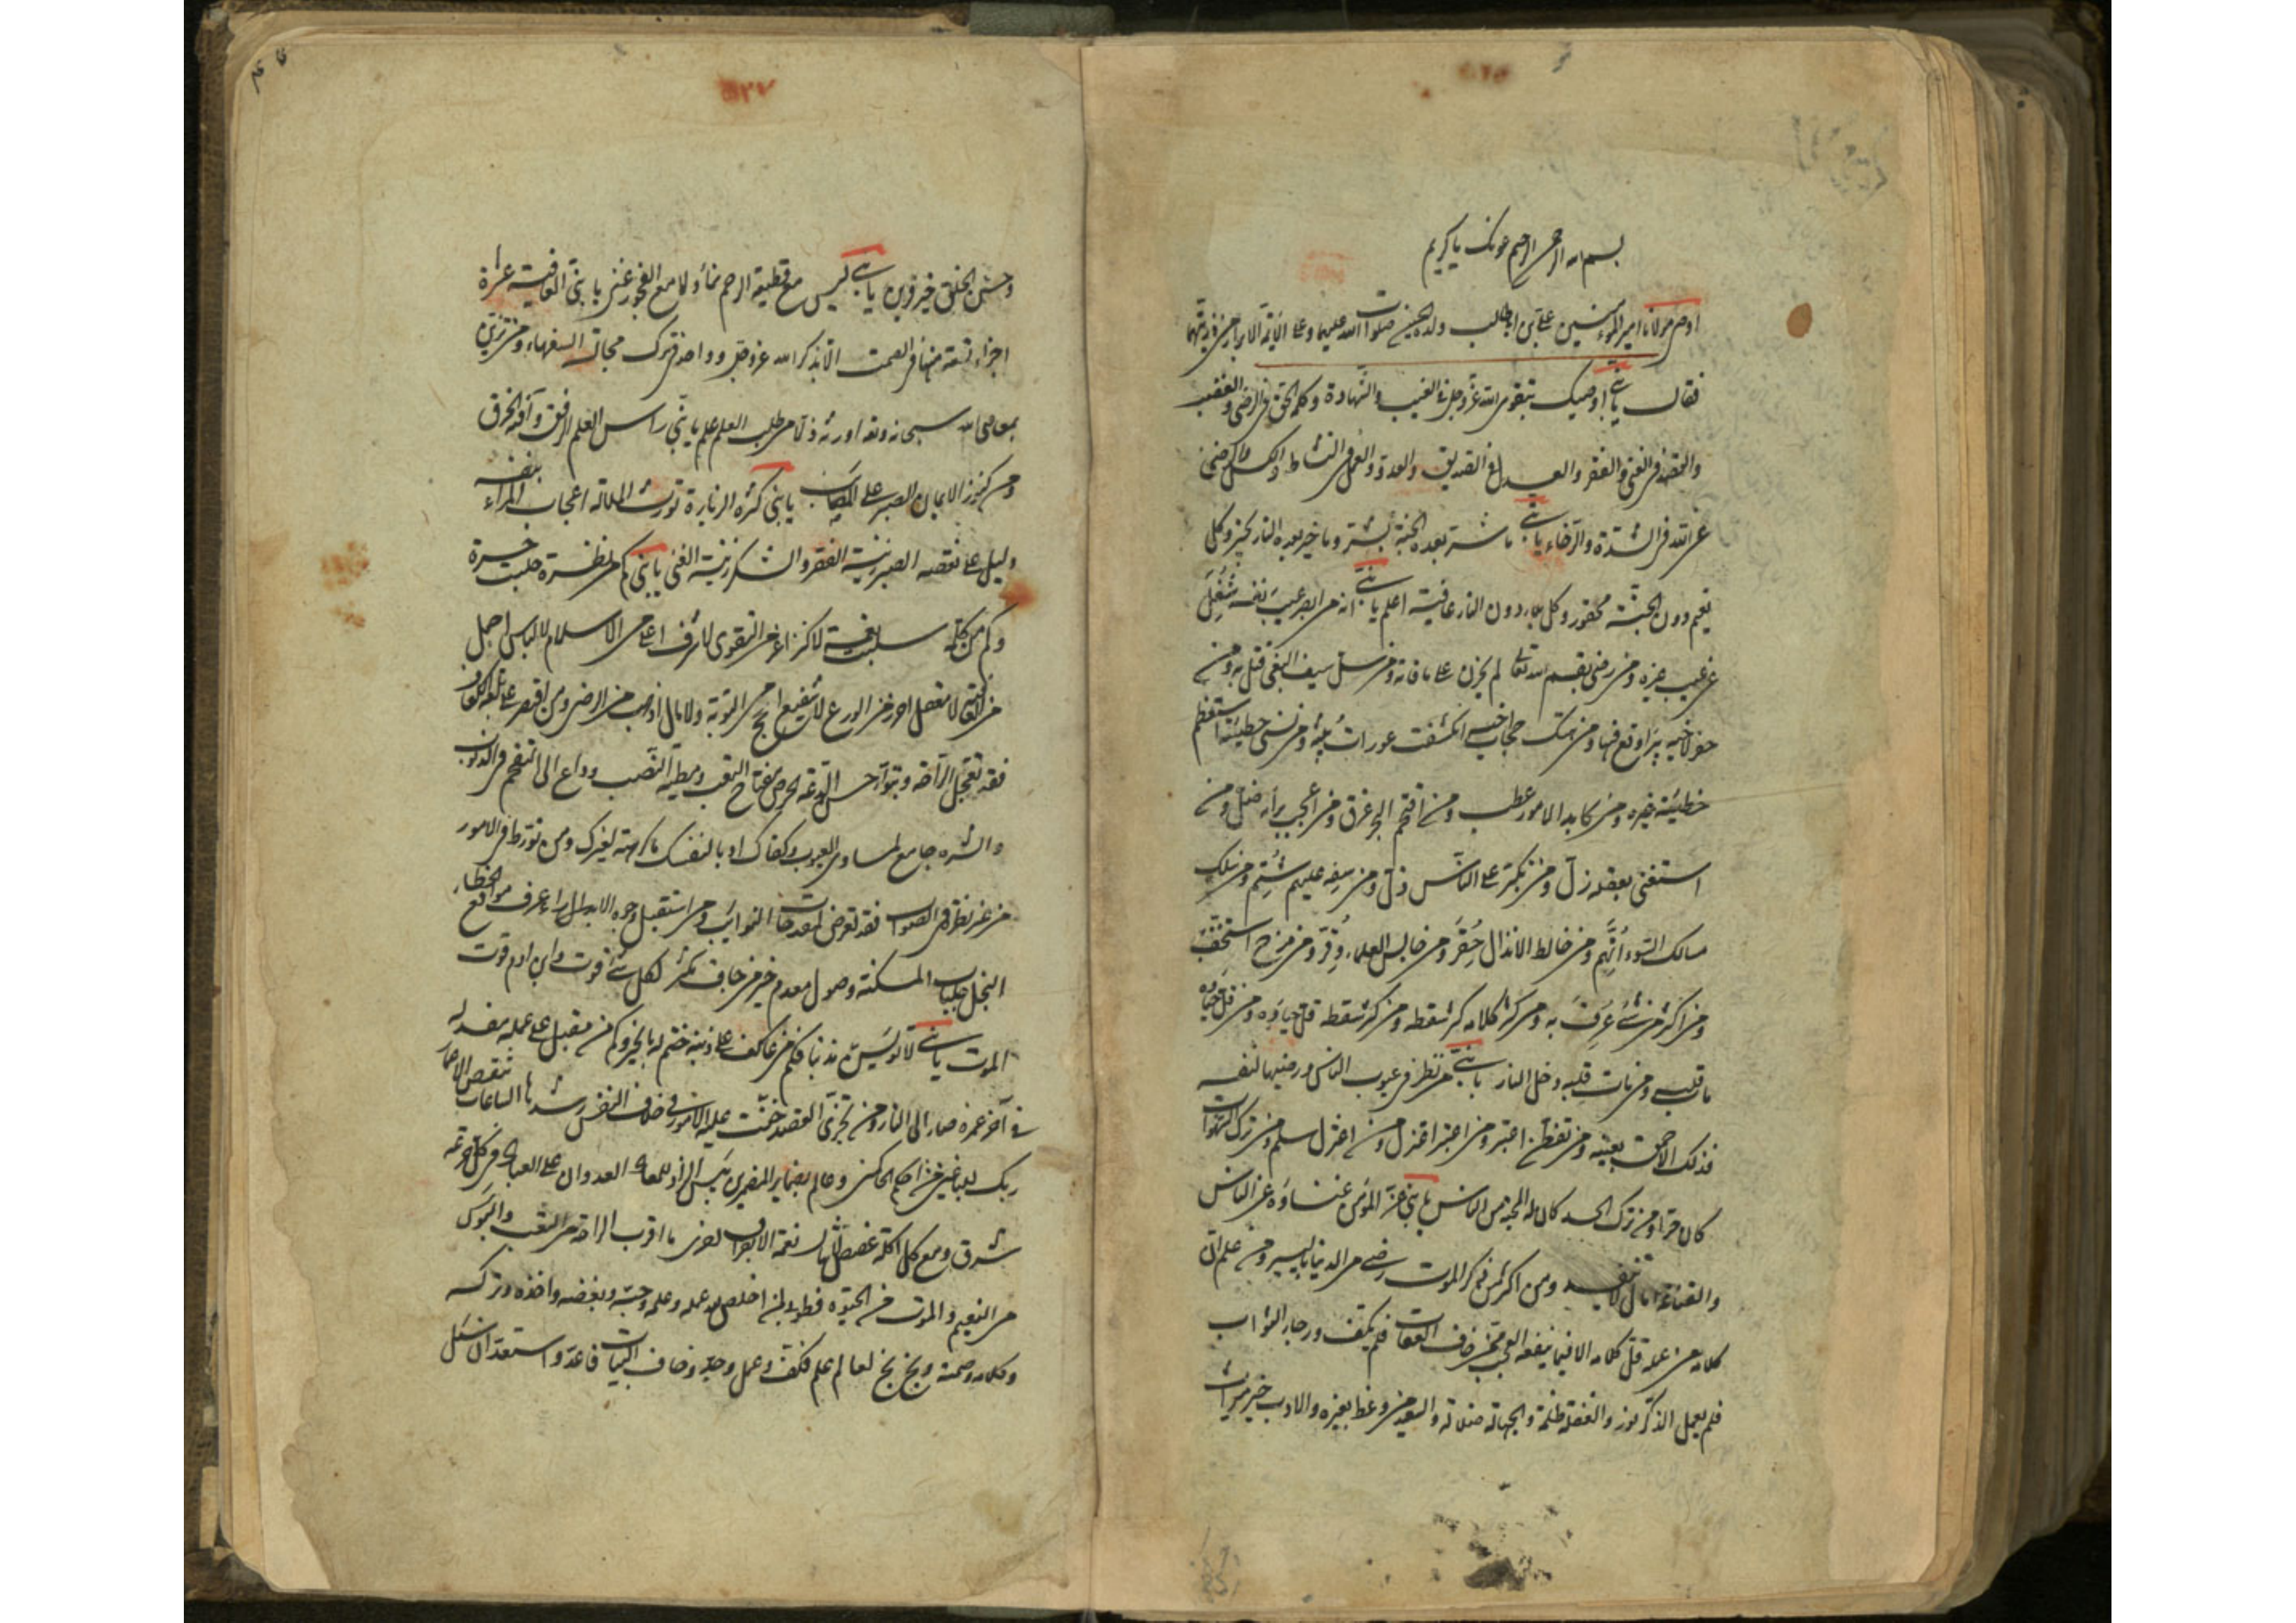 بسم الله الرحمن الرحيم عونك يا كريم
اوصى مولانا امير المؤمنين على بن ابيطالب ولده الحسين صلوات الله عليهما وعلى الائمة الابرار من ذريتهما
فقال يا بنى اوصيك بتقوى الله عز وجل فى الغيب والشهادة وكلمة الحق فى الرضى والغضب
والقصد فى الغنى والفقر والعدل فى الصديق والعدو والعمل فى النشاط والكسل والرضى
عن الله فى الشدة والرخاء يا بنى ما شر بعده الجنة بشر وما خير بعده النار بخير وكل
نعيم دون الجنة محقور وكل بلاء دون النار عافية اعلم يا بنى انه من ابصر عيب نفسه شغل
عن عيب غيره ومن رضى بقسم الله تعالى لم يحزن على ما فاته ومن سل سيف البغى قتل به ومن
حفر لاخيه بئرا وقع فيها ومن هتك حجاب اخيه انكشفت عورات بيته ومن نسى خطيئته استعظم
خطيئة غيره ومن كابد الامور عطب ومن اقتحم البحر غرق ومن اعجب برأيه ضل ومن
استغنى بعقله زل ومن تكبر على الناس ذل ومن سفه عليهم شتم ومن سلك
مسالك السوء اتهم ومن خالط الانذال حقر ومن جالس العلماء وقر ومن مزح استخف
ومن اكثر من شئ عرف به ومن كثر كلامه كثر سقطه ومن كثر سقطه قل حياؤه ومن قل حياؤه
مات قلبه ومن مات قلبه دخل النار يا بنى من نظر فى عيوب الناس ورضيها لنفسه
فذلك الاحمق بعينه ومن تفطن اعتبر ومن اعتبر اعتزل ومن اعتزل سلم ومن ترك الشهوات
كان حرا ومن ترك الحسد كان له المحبة من الناس يا بنى عز المؤمن غناؤه عن الناس
والقناعة مال لا ينفد ومن اكثر من ذكر الموت رضى من الدنيا باليسير ومن علم ان
كلامه من عمله قل كلامه الا فيما ينفعه العجب ممن خاف العقاب فلم يكف ورجا الثواب
فلم يعمل الذكر نور والغفلة ظلمة والجهالة ضلالة والسعيد من وعظ بغيره والادب خير ميراث
وحسن الخلق خير قرين يا بنى ليس مع قطيعة الرحم نماء ولا مع الفجور غنى يا بنى العافية عشرة
اجزاء تسعة منها فى الصمت الا بذكر الله عز وجل وواحد فى ترك مجالسة السفهاء ومن تزين
بمعاصى الله سبحانه وتعالى اورثه ذلا من طلب العلم علم يا بنى راس العلم الرفق وآفته الخرق
ومن كنوز الايمان الصبر على المصائب يا بنى كثرة الزيارة تورث الملالة اعجاب المراء بنفسه
دليل على نقصه الصبر زينة الفقر والشكر زينة الغنى يا بنى كم من نظرة جلبت حسرة
وكم من كلمة سلبت نعمة لا كنز اعز من التقوى لا شرف اعلى من الاسلام لا لباس اجمل
من العافية لا معقل احرز من الورع لا شفيع انجح من التوبة ولا مال اذهب من الرضى ومن اقتصر على بلغة الكفاف
فقد تعجل الراحة وتبوأ حسن الدعة الحرص مفتاح التعب ومطية النصب وداع الى التقحم فى الذنوب
والشره جامع لمساوى العيوب وكفاك ادبا لنفسك ما كرهته لغيرك ومن تورط فى الامور
من غير نظر فى الصواب فقد تعرض لمقدحات النوائب ومن استقبل وجوه الاراء عرف مواقع الخطاء
البخل جلباب المسكنة وصول معدم خير من جاف مكثر لكل شئ قوت وابن ادم قوت
الموت يا بنى لا تويس مذنبا فكم من عاكف على ذنبه ختم له بالخير وكم من مقبل على عمله مفسد له
فى آخر عمره صار الى النار ومن تحرى القصد خفت عليه الامور فى خلاف النفس رشدها الساعات تنقص الاعمار
ربك للباغين من احكم الحاكمين وعالم بضمائر المضمرين بئس الزاد للمعاد العدوان على العباد فى كل جرعة
شرق ومع كل اكلة غصص لا تنال نعمة الا بفراق اخرى ما اقرب الراحة من التعب والبؤس
من النعيم والموت من الحيوة فطوبى لمن اخلص لله عمله وعلمه وحبه وبغضه واخذه وتركه
وكلامه وصمته وبخ بخ لعالم علم فكف وعمل وجد وخاف البيات فاعد واستعد ان سئل